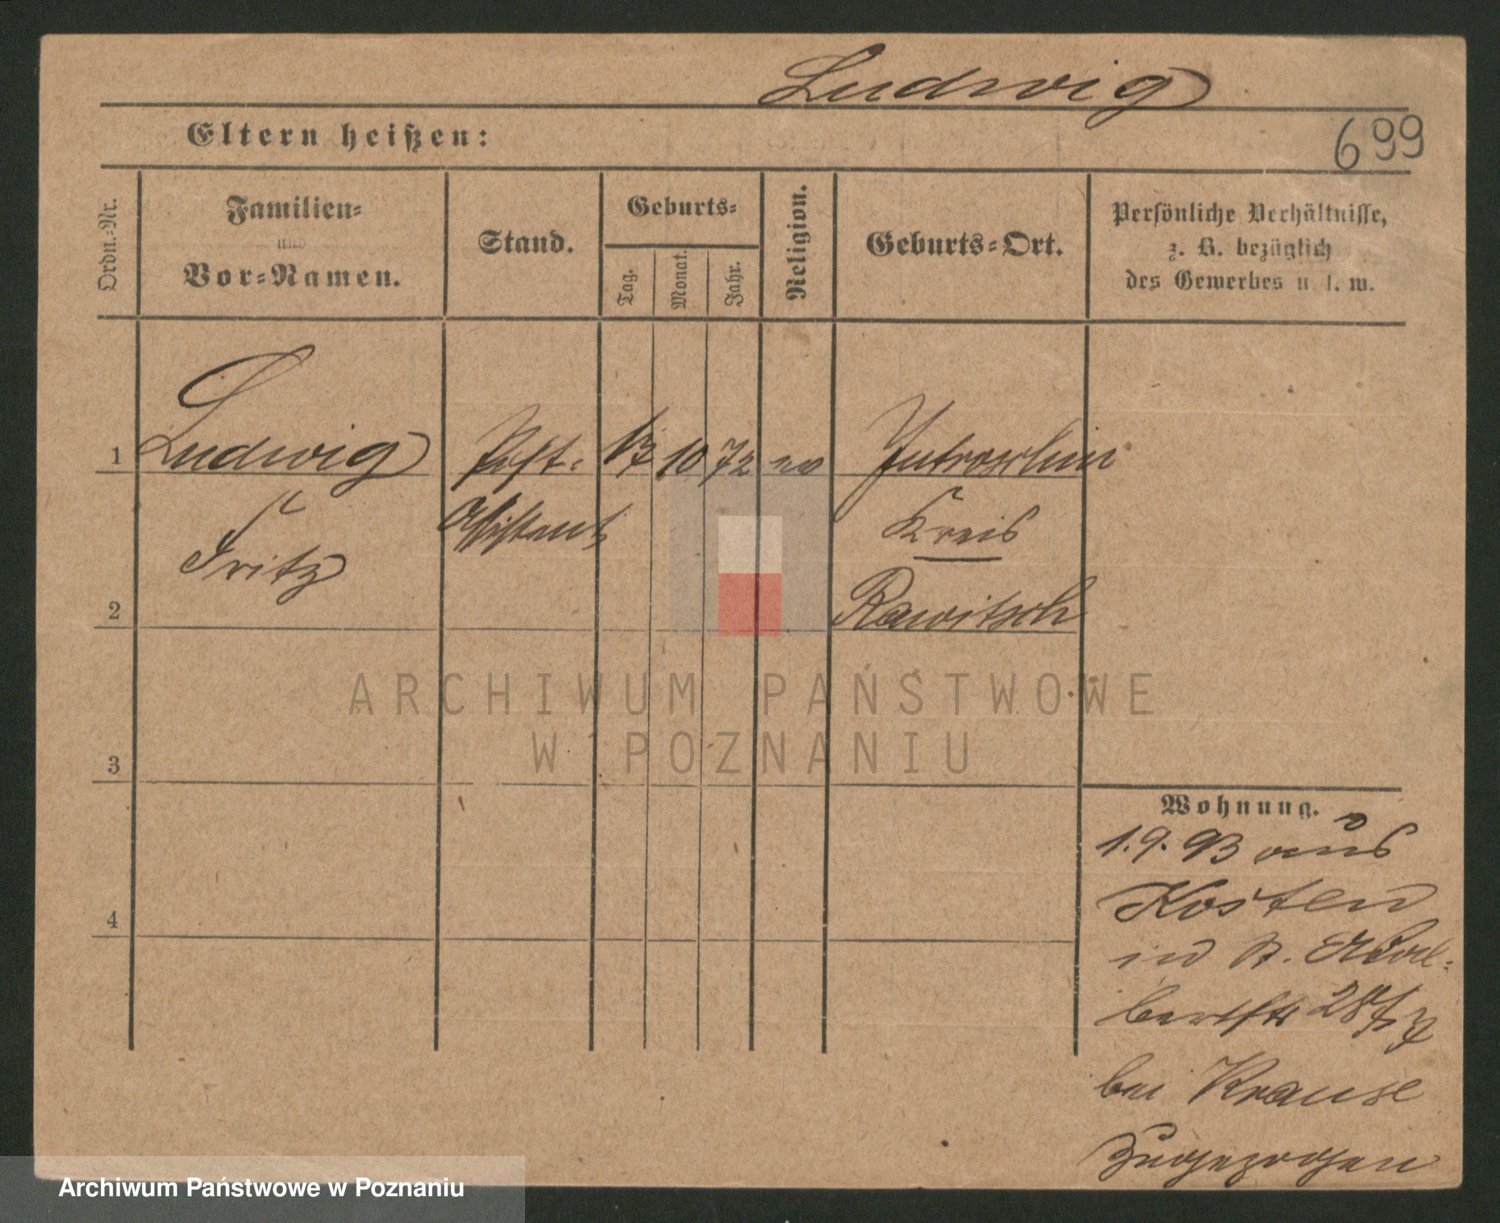 Ludwig
Eltern heißen:
699
Ordn.-Nr.
Familien-
und
Vor-Namen.
Stand.
Geburts-
Tag.
Monat.
Jahr.
Religion.
Geburts-Ort.
Persönliche Verhältnisse,
z. B. bezüglich
des Gewerbes u. s. w.
1
Ludwig
Post-
10 72 ev
Jutroschin
Fritz
Assistent
Kreis
2
Rawitsch
ARCHIWUM PAŃSTWOWE
W POZNANIU
3
Wohnung.
1.9.93 aus
Kosten
4
in St. Adal-
bertstr 28
bei Krause
zugezogen
Archiwum Państwowe w Poznaniu